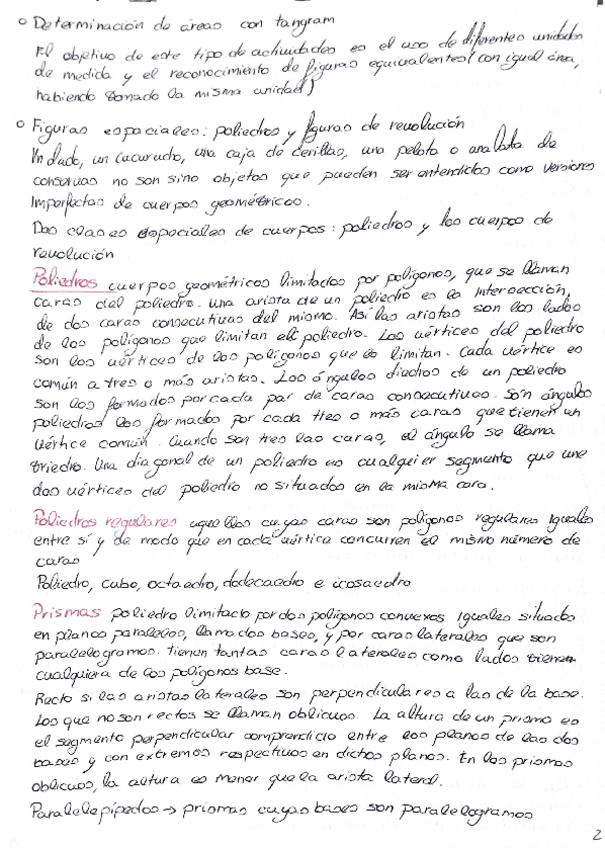 ○ Determinación de áreas con tangram
El objetivo de este tipo de actividades es el uso de diferentes unidades
de medida y el reconocimiento de figuras equivalentes (con igual área,
habiendo tomado la misma unidad)
○ Figuras espaciales: poliedros y figuras de revolución
Un dado, un cucurucho, una caja de cerillas, una pelota o una lata de
conservas no son sino objetos que pueden ser entendidos como versiones
imperfectas de cuerpos geométricos.
Dos clases especiales de cuerpos: poliedros y los cuerpos de
revolución
Poliedros cuerpos geométricos limitados por polígonos, que se llaman
caras del poliedro. Una arista de un poliedro es la intersección,
de dos caras consecutivas del mismo. Así las aristas son los lados
de los polígonos que limitan el poliedro. Los vértices del poliedro
son los vértices de los polígonos que lo limitan. Cada vértice es
común a tres o más aristas. Los ángulos diedros de un poliedro
son los formados por cada par de caras consecutivas. Son ángulos
poliedros los formados por cada tres o más caras que tienen un
vértice común. Cuando son tres las caras, el ángulo se llama
triedro. Una diagonal de un poliedro es cualquier segmento que une
dos vértices del poliedro no situados en la misma cara.
Poliedros regulares aquellos cuyas caras son polígonos regulares iguales
entre sí y de modo que en cada vértice concurren el mismo número de
caras
Poliedro, cubo, octaedro, dodecaedro e icosaedro
Prismas poliedro limitado por dos polígonos convexos iguales situados
en planos paralelos, llamados bases, y por caras laterales que son
paralelogramos. tienen tantas caras laterales como lados tienen
cualquiera de los polígonos base.
Recto si las aristas laterales son perpendiculares a las de la base.
Los que no son rectos se llaman oblicuos. La altura de un prisma es
el segmento perpendicular comprendido entre los planos de las dos
bases y con extremos respectivos en dichos planos. En los prismas
oblicuos, la altura es menor que la arista lateral.
Paralelepípedos → prismas cuyas bases son paralelogramos
2